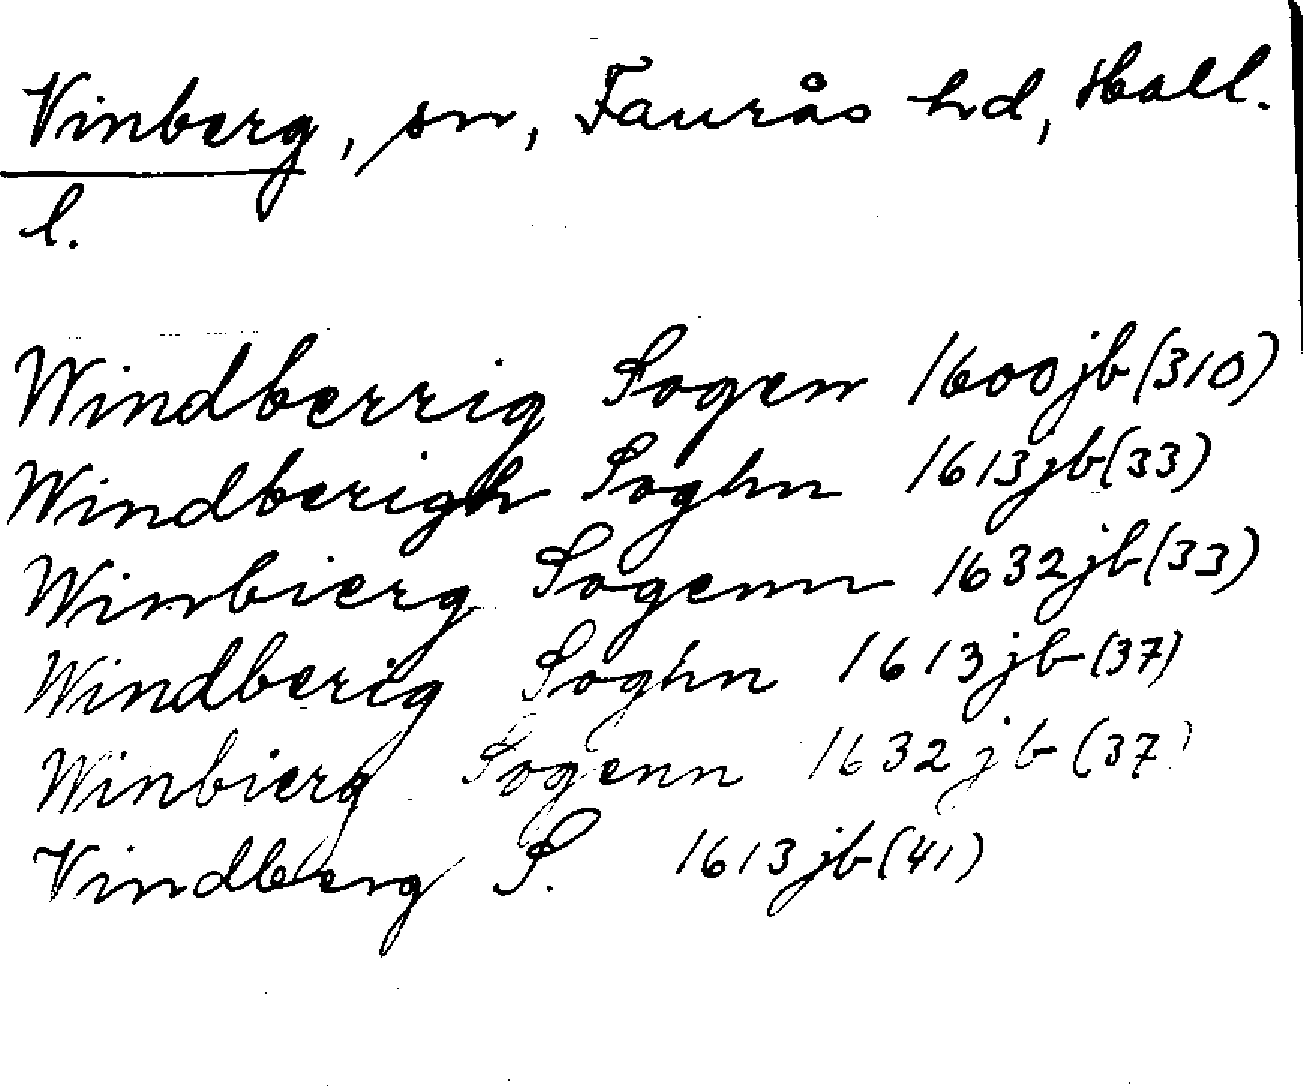 Vinberg, sn, Faurås hd, Hall.
l.
Windberrig Sogen 1600 jb (310)
Windberigh Soghn 1613 jb (33)
Winbierg Sogenn 1632 jb (33)
Windberig Soghn 1613 jb (37)
Winbierg Sogenn 1632 jb (37)
Vindberg S. 1613 jb (41)